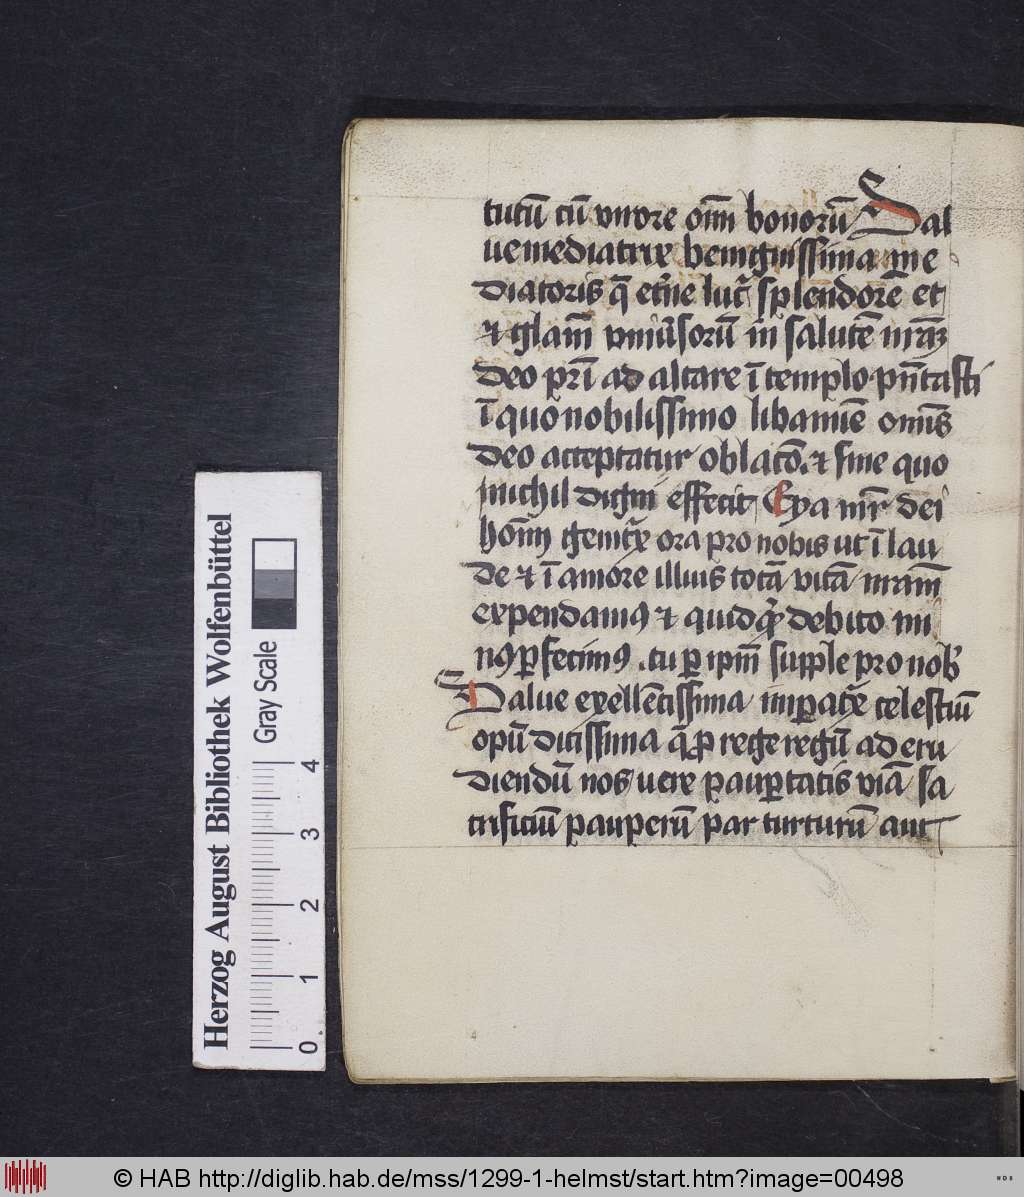 tutū cū vuore om̄ bonorū Sal
ue mediatrix benignissima me
diatoris q̄ et̄ne luc̄ splendorē et
et gl̄am vniūsorū in salutē nr̄az
deo pr̄i ad altare ī templo pn̄tasti
ī quo nobilissimo libamīe omīs
deo acceptatur oblacō. et sine quo
nichil digni effecit Eya mr̄ dei
hōīs genit͛x ora pro nobis ut ī lau
de et ī amore illius totā vitā nr̄am
expendamꝰ et quidq͛ debito mi
nꝰ ꝑfecimꝰ .tu ꝑ ip̄m supple pro nob̄
Salue exellētissima imꝑat͛x celestiū
opū ditissima q̄ ꝓ rege regū ad eru
diendū nos uere pauꝑtatis viā sa
crificiū pauperū par turturū aut
Herzog August Bibliothek Wolfenbüttel
Gray Scale
0 1 2 3 4
© HAB http://diglib.hab.de/mss/1299-1-helmst/start.htm?image=00498